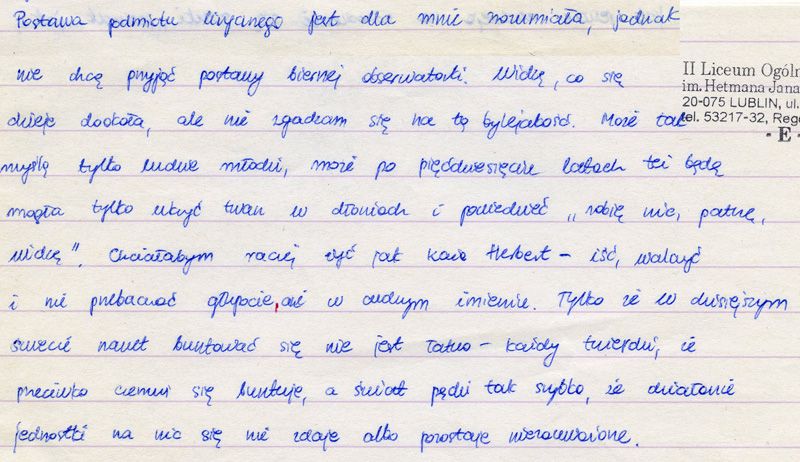 Postawa podmiotu lirycznego jest dla mnie zrozumiała, jednak
nie chcę przyjąć postawy biernej obserwatorki. Widzę, co się
dzieje dookoła, ale nie zgadzam się na tę bylejakość. Może tak
myślą tylko ludzie młodzi, może po pięćdziesięciu latach też będę
mogła tylko ukryć twarz w dłoniach i powiedzieć „robię nic, patrzę,
widzę". Chciałabym raczej żyć jak każe Herbert – iść, walczyć
i nie przebaczać głupocie, ani w cudzym imieniu. Tylko że w dzisiejszym
świecie nawet buntować się nie jest łatwo – każdy twierdzi, że
przeciwko czemuś się buntuje, a świat pędzi tak szybko, że działanie
jednostki na nic się nie zdaje albo pozostaje niezauważone.
II Liceum Ogóln
im. Hetmana Jana
20-075 LUBLIN, ul.
tel. 53217-32, Rego
- E -